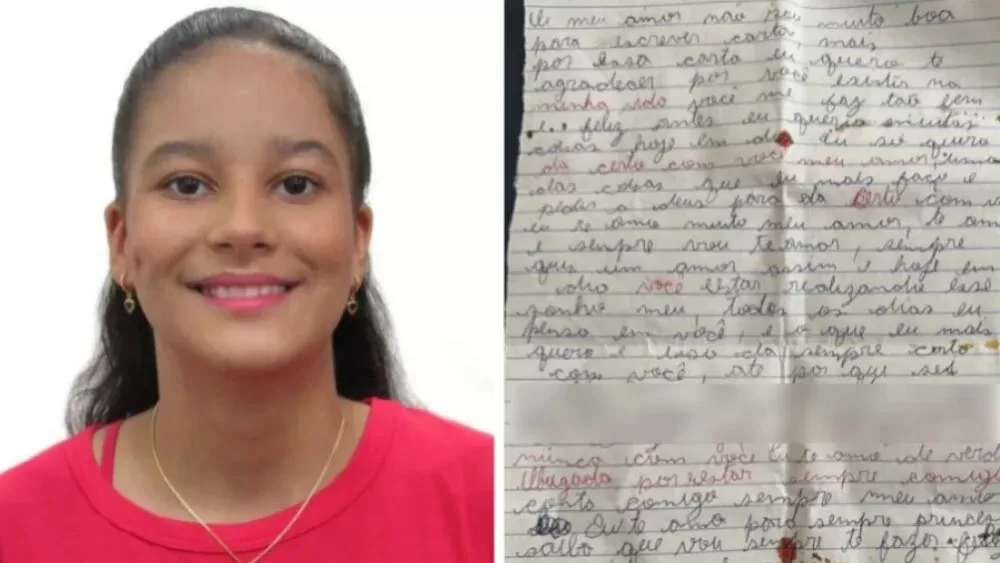 meu amor não sou muito boa
para escrever carta, mais
por essa carta eu queria te
agradecer por você existir na
minha vida você me faz tão bem
e feliz antes eu queria
coisas hoje em dia eu só quero
da certo com você meu amor, uma
das coisas que eu mais faço e
pedir a deus para da certo com
eu te amo muito meu amor, te am
e sempre vou te amar, sempre
quis um amor assim e hoje em
dia você estar realizando esse
sonho meu, todos os dias eu
penso em você, e o que eu mais
quero e isso da sempre certo
com você, ate por que sei
nunca com você Eu te amo de verd
Obrigada por estar sempre comigo
conta comigo sempre meu amor
Eu te amo para sempre princes
saiba que vou sempre te fazer